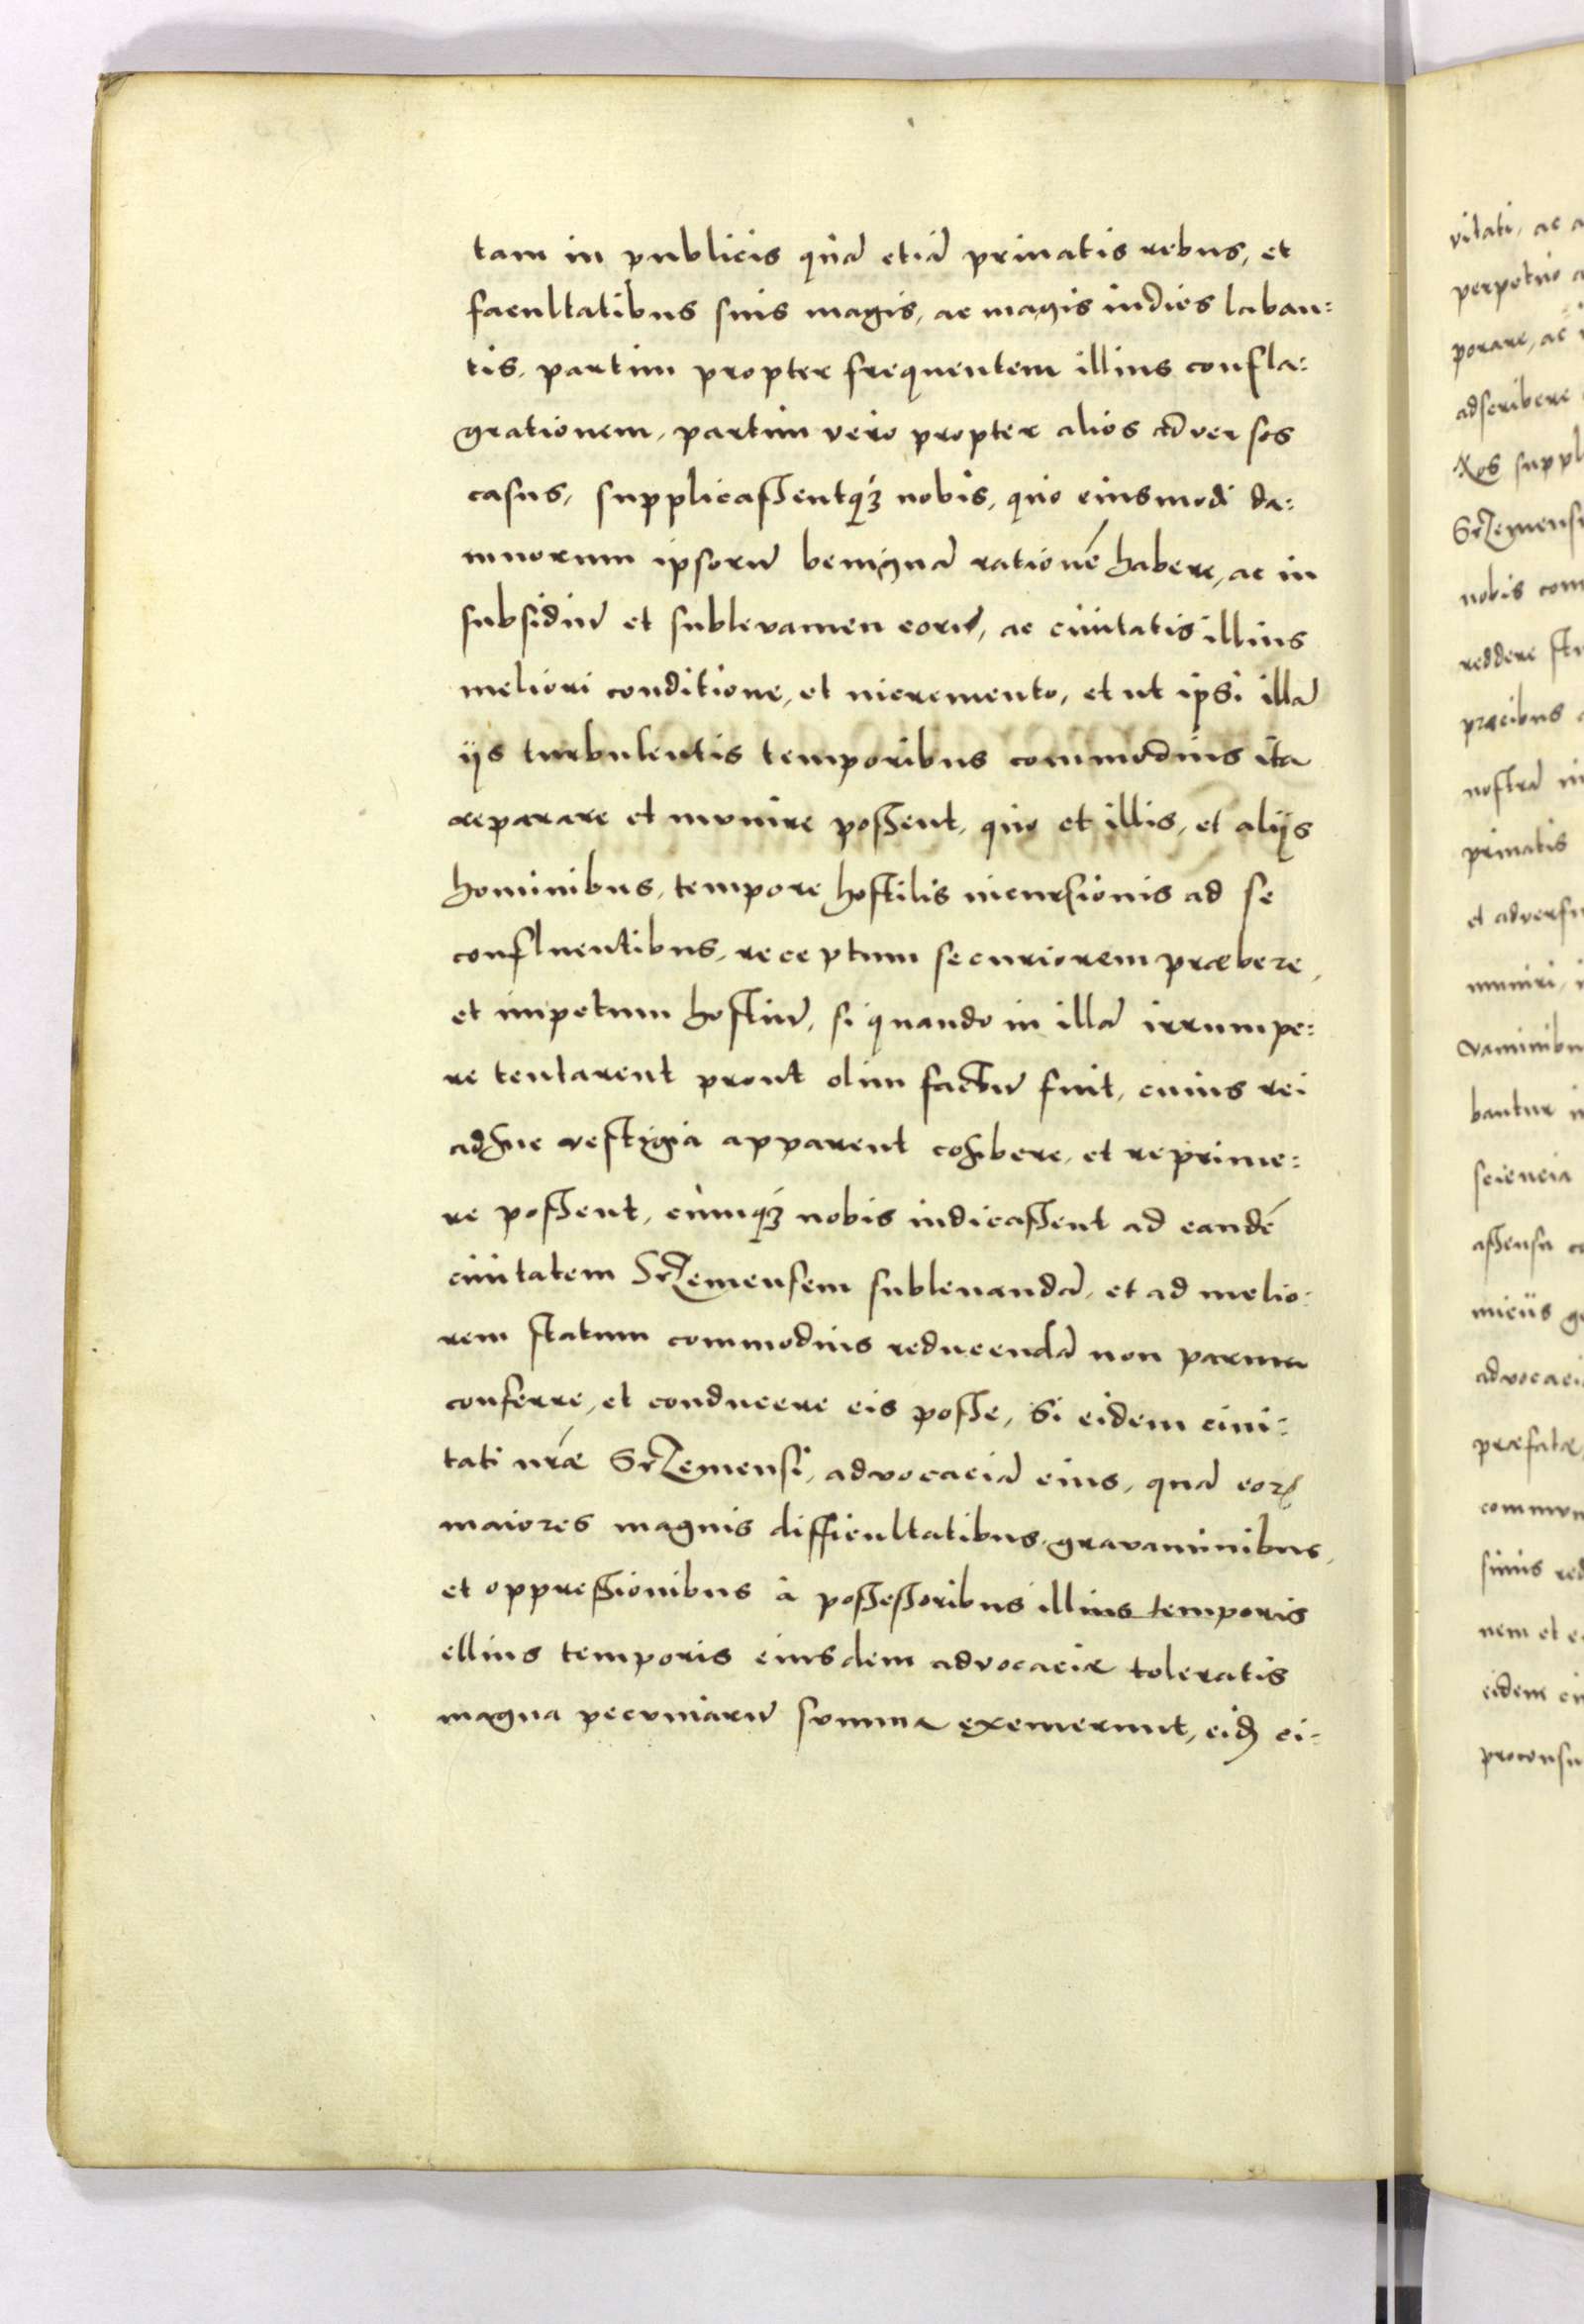 tam in publicis quā etiā priuatis rebus, et
facultatibus suis magis, ac magis indies laban:
tis, partim propter frequentem illius confla:
grationem, partim vero propter alios adversos
casus, supplicassentq́ꝫ nobis, quo eiusmodi da:
mnorum ipsorū benignā rationē habere, ac in
subsidiū et sublevamen eorū, ac ciuitatis illius
meliori conditione, et incremento, et ut ipsi illā
ijs turbulentis temporibus commodius ita
reparare et mvnire possent, quo et illis, et alijs
hominibus, tempore hostilis incursionis ad se
confluentibus, receptum securiorem præbere,
et impetum hostiū, si quando in illā irrumpe:
re tentarent prout olim factū fuit, cuius rei
adhuc vestigia apparent cohibere, et reprime:
re possent, cùmq́ꝫ nobis indicassent ad eandē
ciuitatem Srzemensem subleuandā, et ad melio:
rem statum commodius reducendā non parum
conferre, et conducere eis posse, si eidem ciui:
tati nræ Srzemensi, advocaciā eius, quā eorꝝ
maiores magnis difficultatibus, gravaminibus,
et oppressionibus à possessoribus illius temporis
illius temporis eiusdem advocaciæ toleratis
magna pecvniarū svmma exemerunt, eidꝫ ci:
vitati, ac a
perpetuo
porare, ac
adscribere
Nos suppl
Srzemensi
nobis com
reddere stu
præcibus
nostrā in
priuatis
et adversu
muniri, i
vaminibu
bantur in
sciencia
assensu co
micijs ge
advocaci
præfatæ
commvn
simus red
nem et e
eidem ci
proconsu